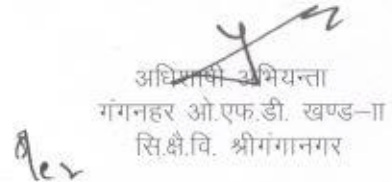 अधिशाषी अभियन्ता
गंगनहर ओ.एफ.डी. खण्ड-II
सि.क्षै.वि. श्रीगंगानगर